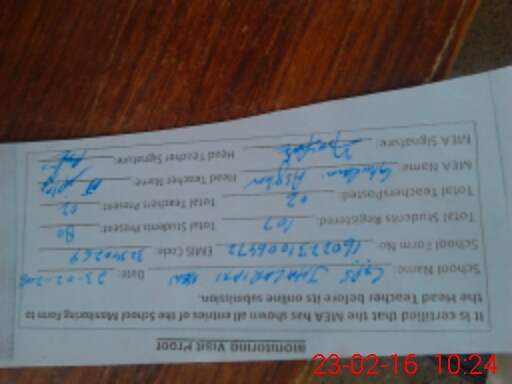 Monitoring Visit Proof
It is certified that the MEA has shown all entries of the School Monitoring Form to
the Head Teacher before its online submission.
School Name: GPS Date: 23-02-
School Form No: EMIS Code:
Total Students Registered: 107 Total Students Present: 80
Total TeachersPosted: 02 Total Teachers Present: 02
MEA Name: Ghulam Asghar Head Teacher Name:
MEA Signature: Head Teacher Signature:
23-02-16 10:24